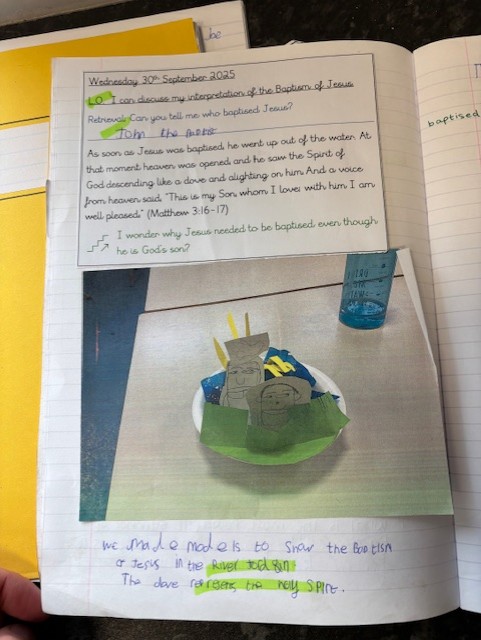 be
Wednesday 30th September 2025
LO: I can discuss my interpretation of the Baptism of Jesus
Retrieval: Can you tell me who baptised Jesus?
John the Baptist
As soon as Jesus was baptised, he went up out of the water. At
that moment heaven was opened, and he saw the Spirit of
God descending like a dove and alighting on him. And a voice
from heaven said, "This is my Son, whom I love; with him I am
well pleased." (Matthew 3:16-17)
I wonder why Jesus needed to be baptised even though
he is God's son?
baptised
we made models to Snow the Baptism
of Jesis in the River Jordan
The dove represens the holy SPirt.